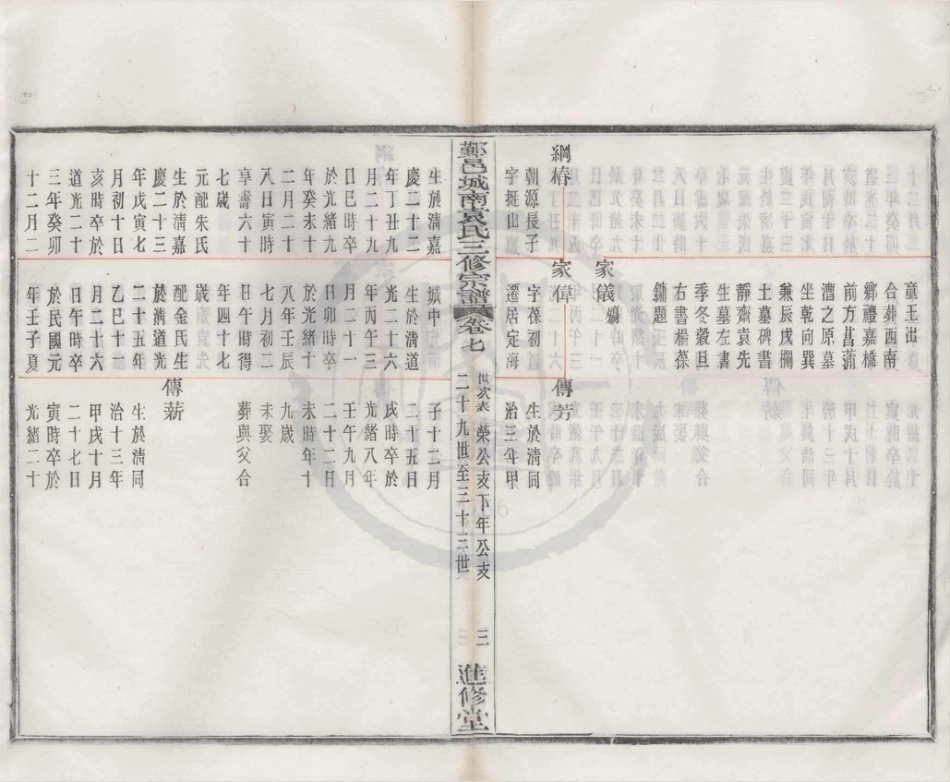 童玉出
合葬西南
鄉禮嘉橋
前方菖蒲
漕之原墓
坐乾向巽
兼辰戌欄
土墓碑書
靜齋袁先
生墓左書
季冬穀旦
右書楊葆
鏞題
家儀嫡
綱椿
朝源長子
字挺山
家偉
字葆初
遷居定海
傳芳
生於清同
治三年甲
鄞邑城南袁氏三修宗譜
卷七
世次表
榮公支下年公支
二十九世至三十三世
三
進修堂
生於清嘉
慶二十二
年丁丑九
月二十九
日巳時卒
於光緒九
年癸未十
二月二十
八日寅時
享壽六十
七歲
元配朱氏
生於清嘉
慶二十三
年戊寅七
月初十日
亥時卒於
道光二十
三年癸卯
十二月二
城中
生於清道
光二十六
年丙午三
月二十一
日卯時卒
於光緒十
八年壬辰
七月初二
日午時得
年四十七
歲
配金氏生
於清道光
二十五年
乙巳十一
月二十六
日午時卒
於民國元
年壬子夏
子十二月
二十五日
戌時卒於
光緒八年
壬午九月
二十二日
未時年十
九歲
未娶
葬與父合
傳薪
生於清同
治十三年
甲戌十月
二十七日
寅時卒於
光緒二十